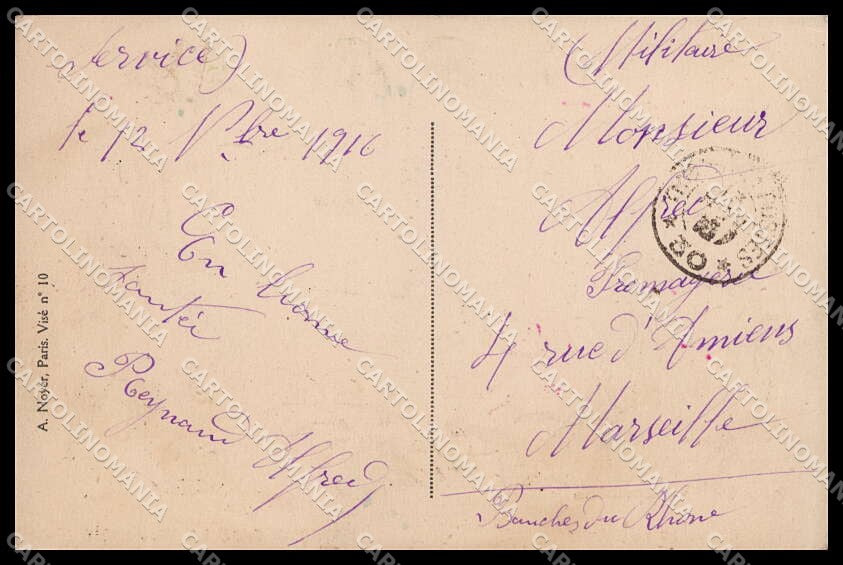 Service)
le 12 Nbre 1916
En bonne
santée
Reynaud Alfred
A. Noyer, Paris. Visé n° 10
(Militaire
Monsieur
Alfred
Fromagerie
4 rue d'Amiens
Marseille
Bouches du Rhône
CARTOLINOMANIA